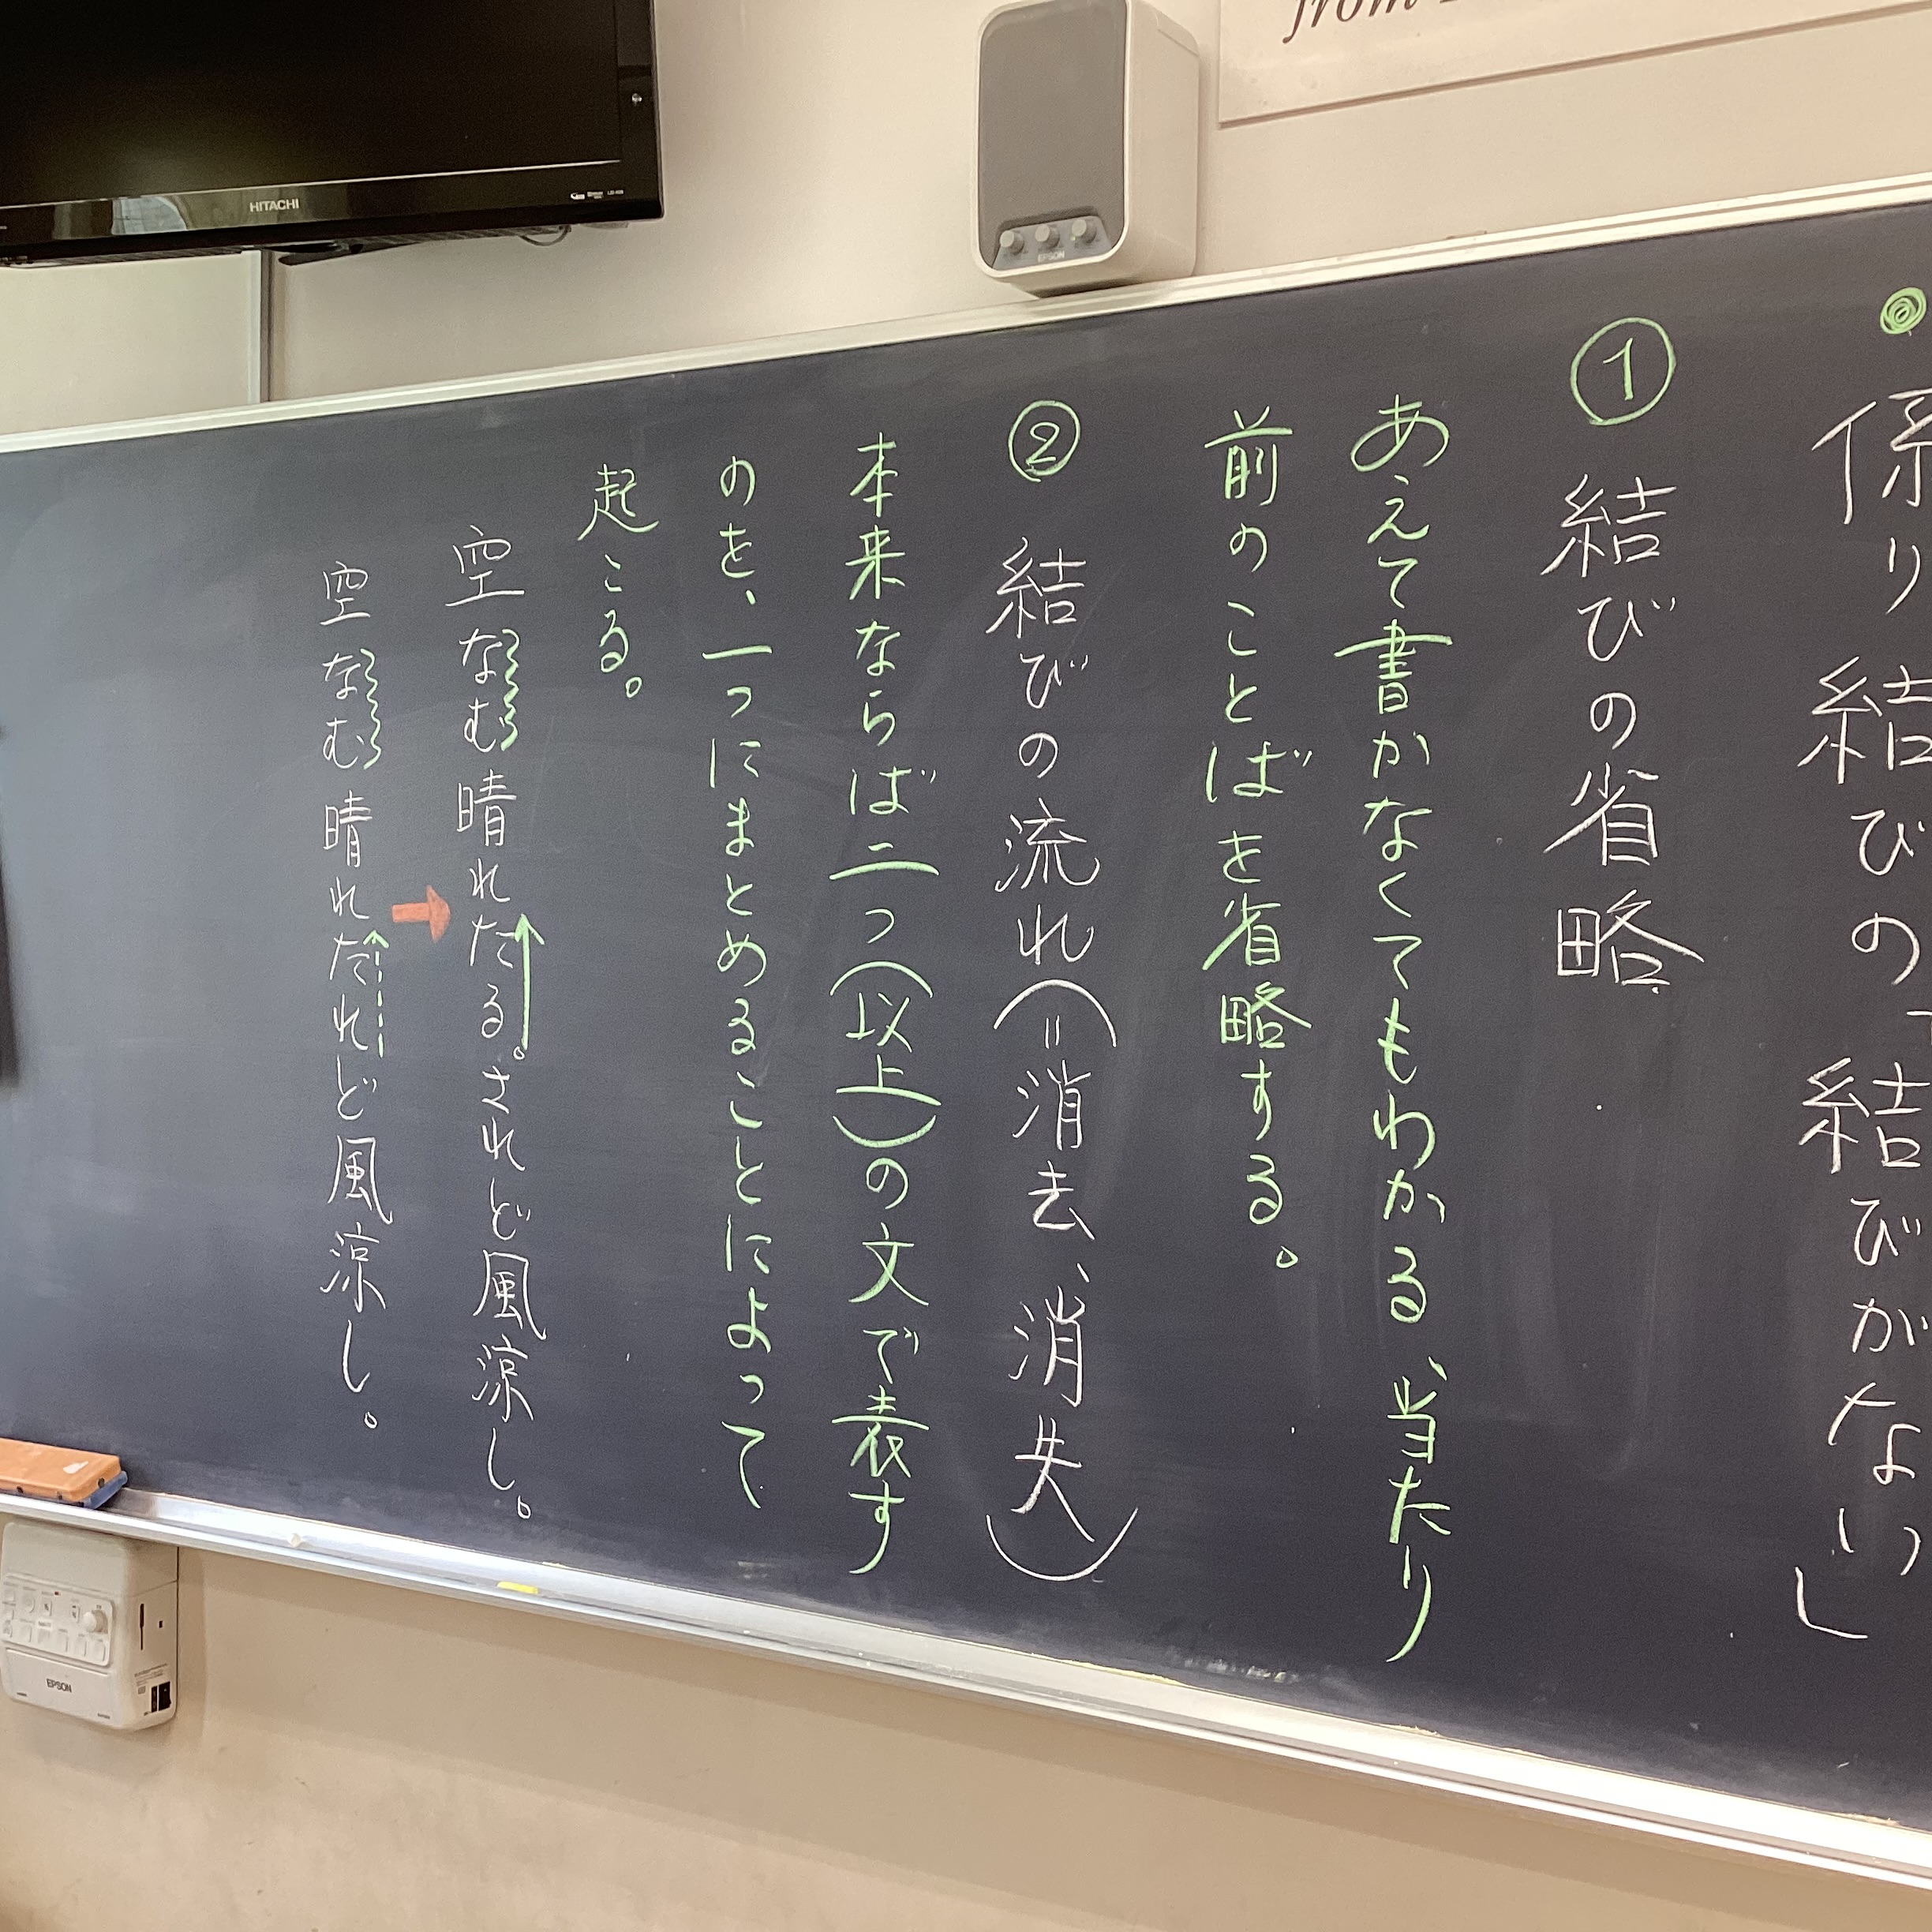 係り結びの「結びがない」
① 結びの省略
あえて書かなくてもわかる、当たり
前のことばを省略する。
② 結びの流れ(＝消去、消失)
本来ならば二つ(以上)の文で表す
のを、一つにまとめることによって
起こる。
空なむ晴れたる。されど風涼し。
空なむ晴れたれど風涼し。
from
HITACHI
EPSON
EPSON